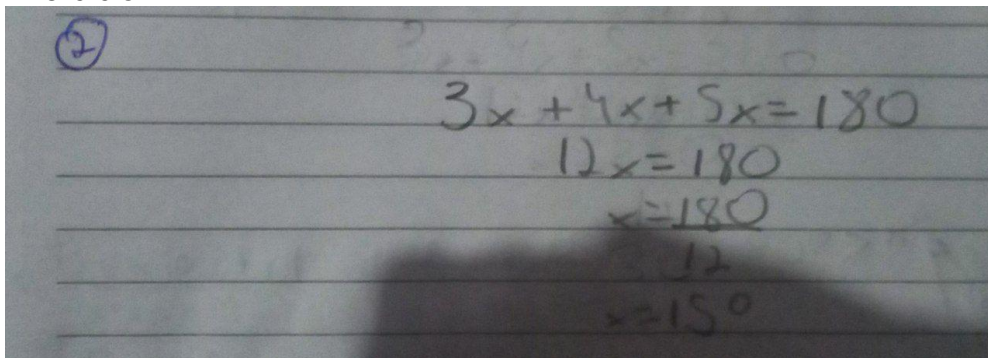 2
3x + 4x + 5x = 180
12x = 180
x = 180
12
x = 15°